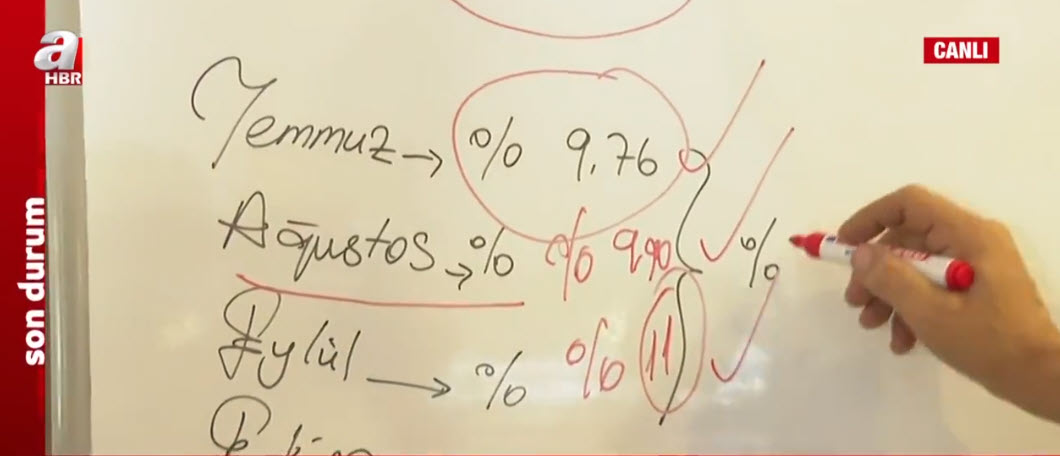 a
HBR
CANLI
son durum
Temmuz → % 9.76
Ağustos → % % 9,90 %
Eylül → % % 11